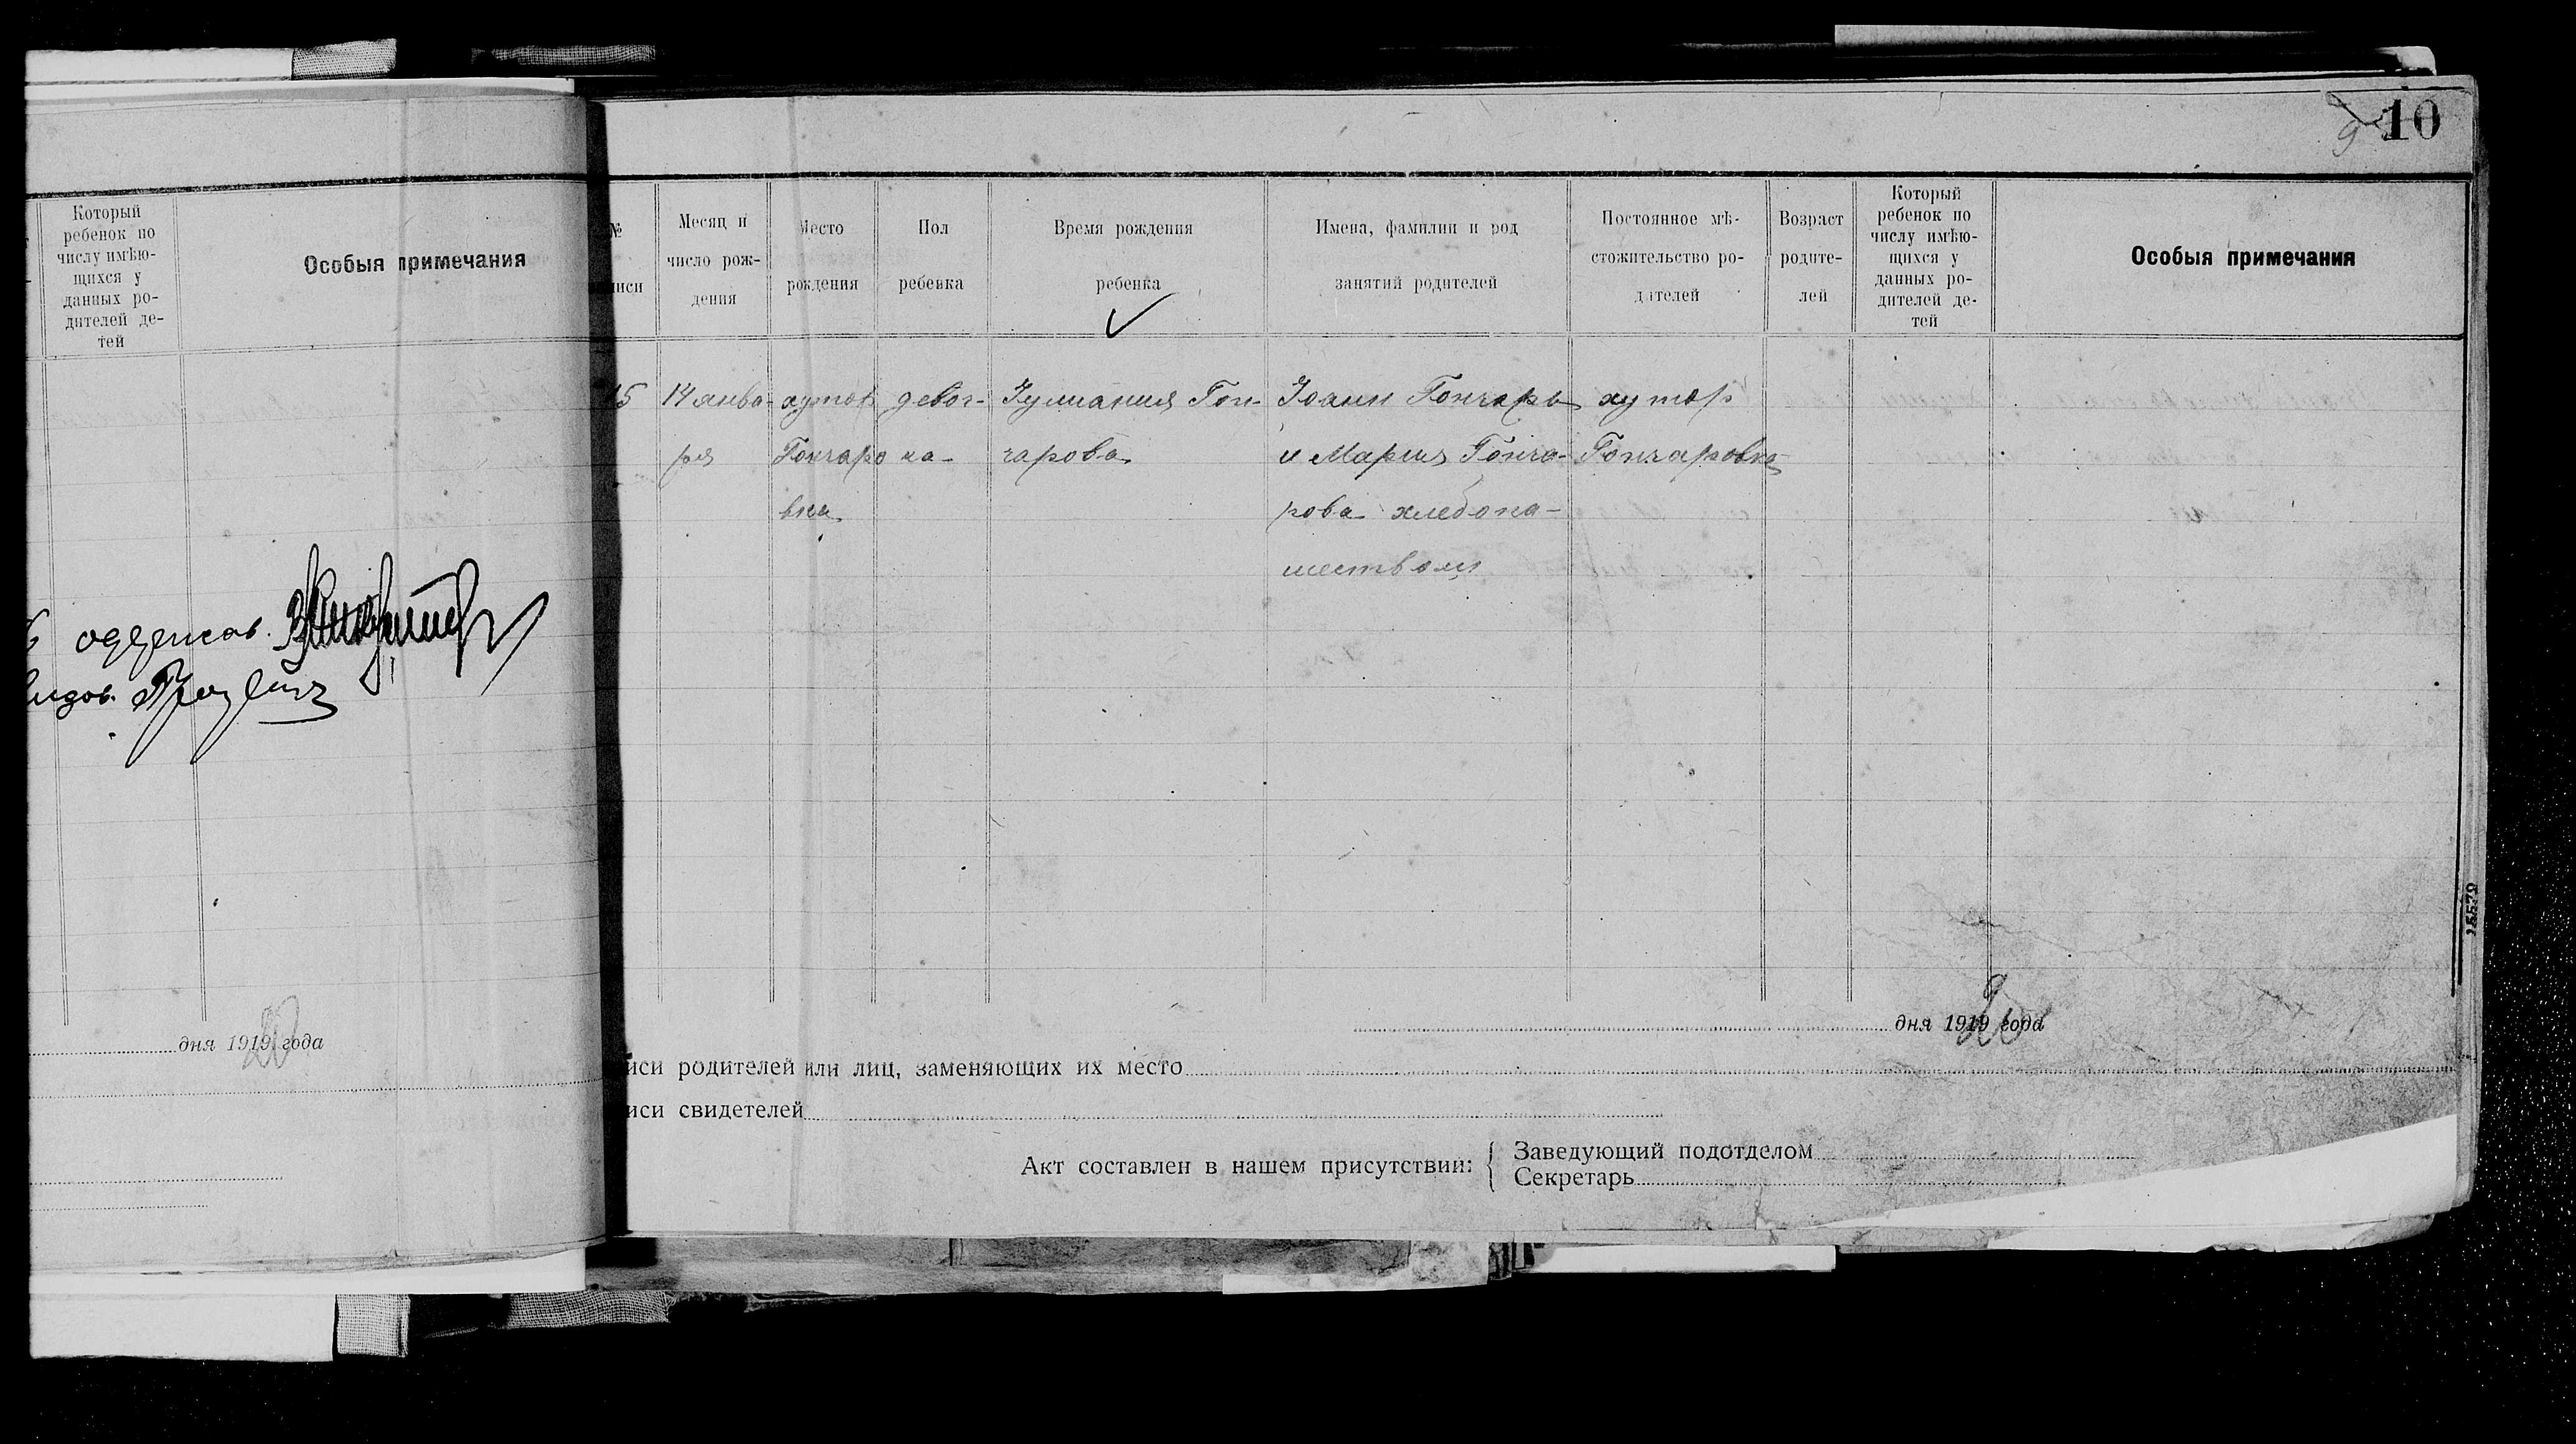 Который
ребенок по
числу имѣю-
щихся у
данных ро-
дителей де-
тей
Особыя примечания
дня 1919 года
9 10
№
иси
Месяц и
число рож-
дения
Место
рождения
Пол
ребенка
Время рождения
ребенка
Имена, фамилии и род
занятий родителей
Постоянное мѣ-
стожительство ро-
дителей
Возраст
родите-
лей
Который
ребенок по
числу имѣю-
щихся у
данных ро-
дителей де-
тей
Особыя примечания
15 14 янва- хутор девоч- Гон- Іоанн Гончаръ хутор
ря Гончаро ка чарова и Мария Гонча- Гончаровка
вка рова хлебопа-
шеством
дня 1919 года
20
иси родителей или лиц, заменяющих их место
иси свидетелей
Акт составлен в нашем присутствии:
Заведующий подотделом
Секретарь